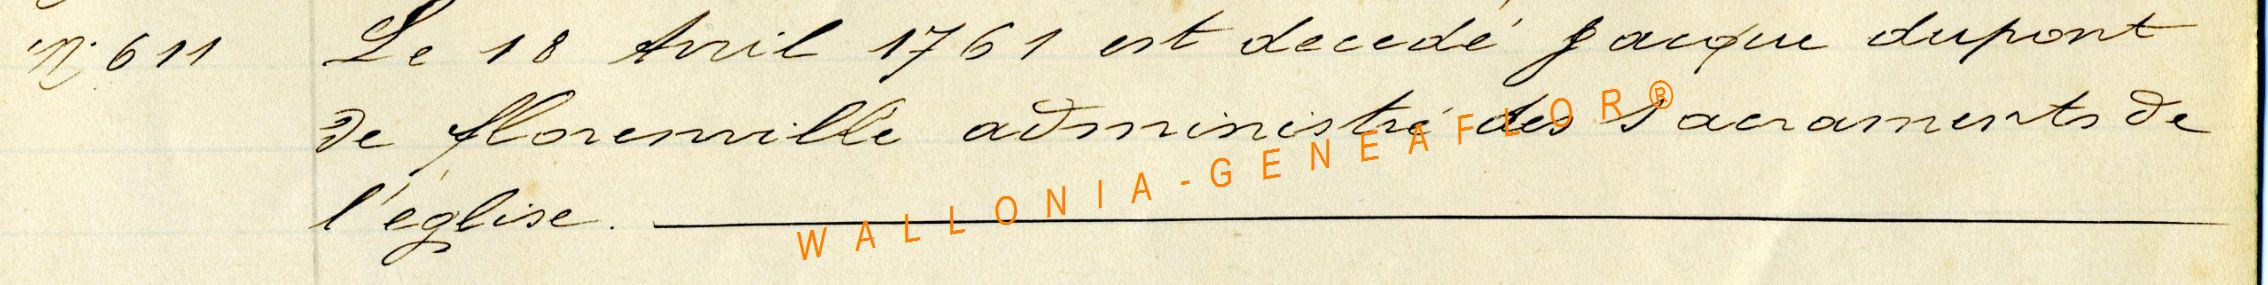 N° 611 Le 18 Avril 1761 est decedé jacque dupont
de florenville administré des sacraments de
l'église.
WALLONIA-GENEAFLOR®